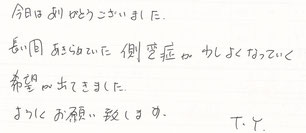 今日はありがとうございました。
長い間 あきらめていた 側弯症が 少しよくなっていく
希望が出てきました。
よろしくお願い致します。
T.Y.